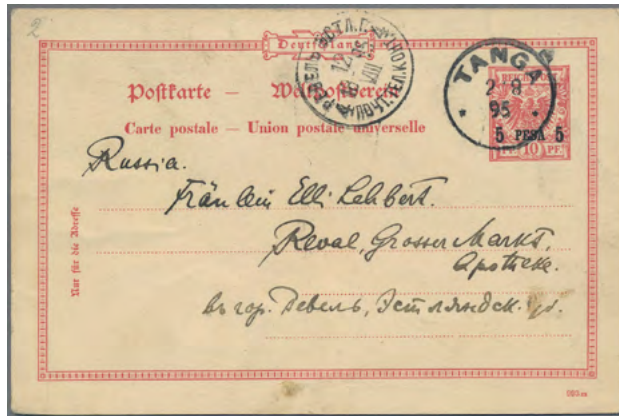 2
Deutschland
Postkarte — Weltpostverein
Carte postale — Union postale universelle
REICHSPOST
5 PESA 5
PF. 10 PF.
TANGA
2 8
95
РЕВЕЛЬ ЭСТЛ. Г.
12
VIII
Russia.
Fräulein Elli Lehbert.
Reval, Grosser Markt,
Apotheke.
въ гор. Ревель, Эстляндск. губ.
Nur für die Adresse